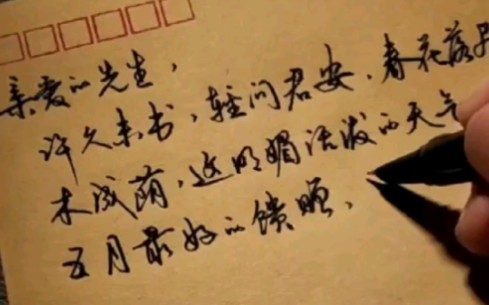 亲爱的先生，
许久未书，轻问君安。春花落尽
木成荫，这明媚活泼的天气
五月最好的馈赠、